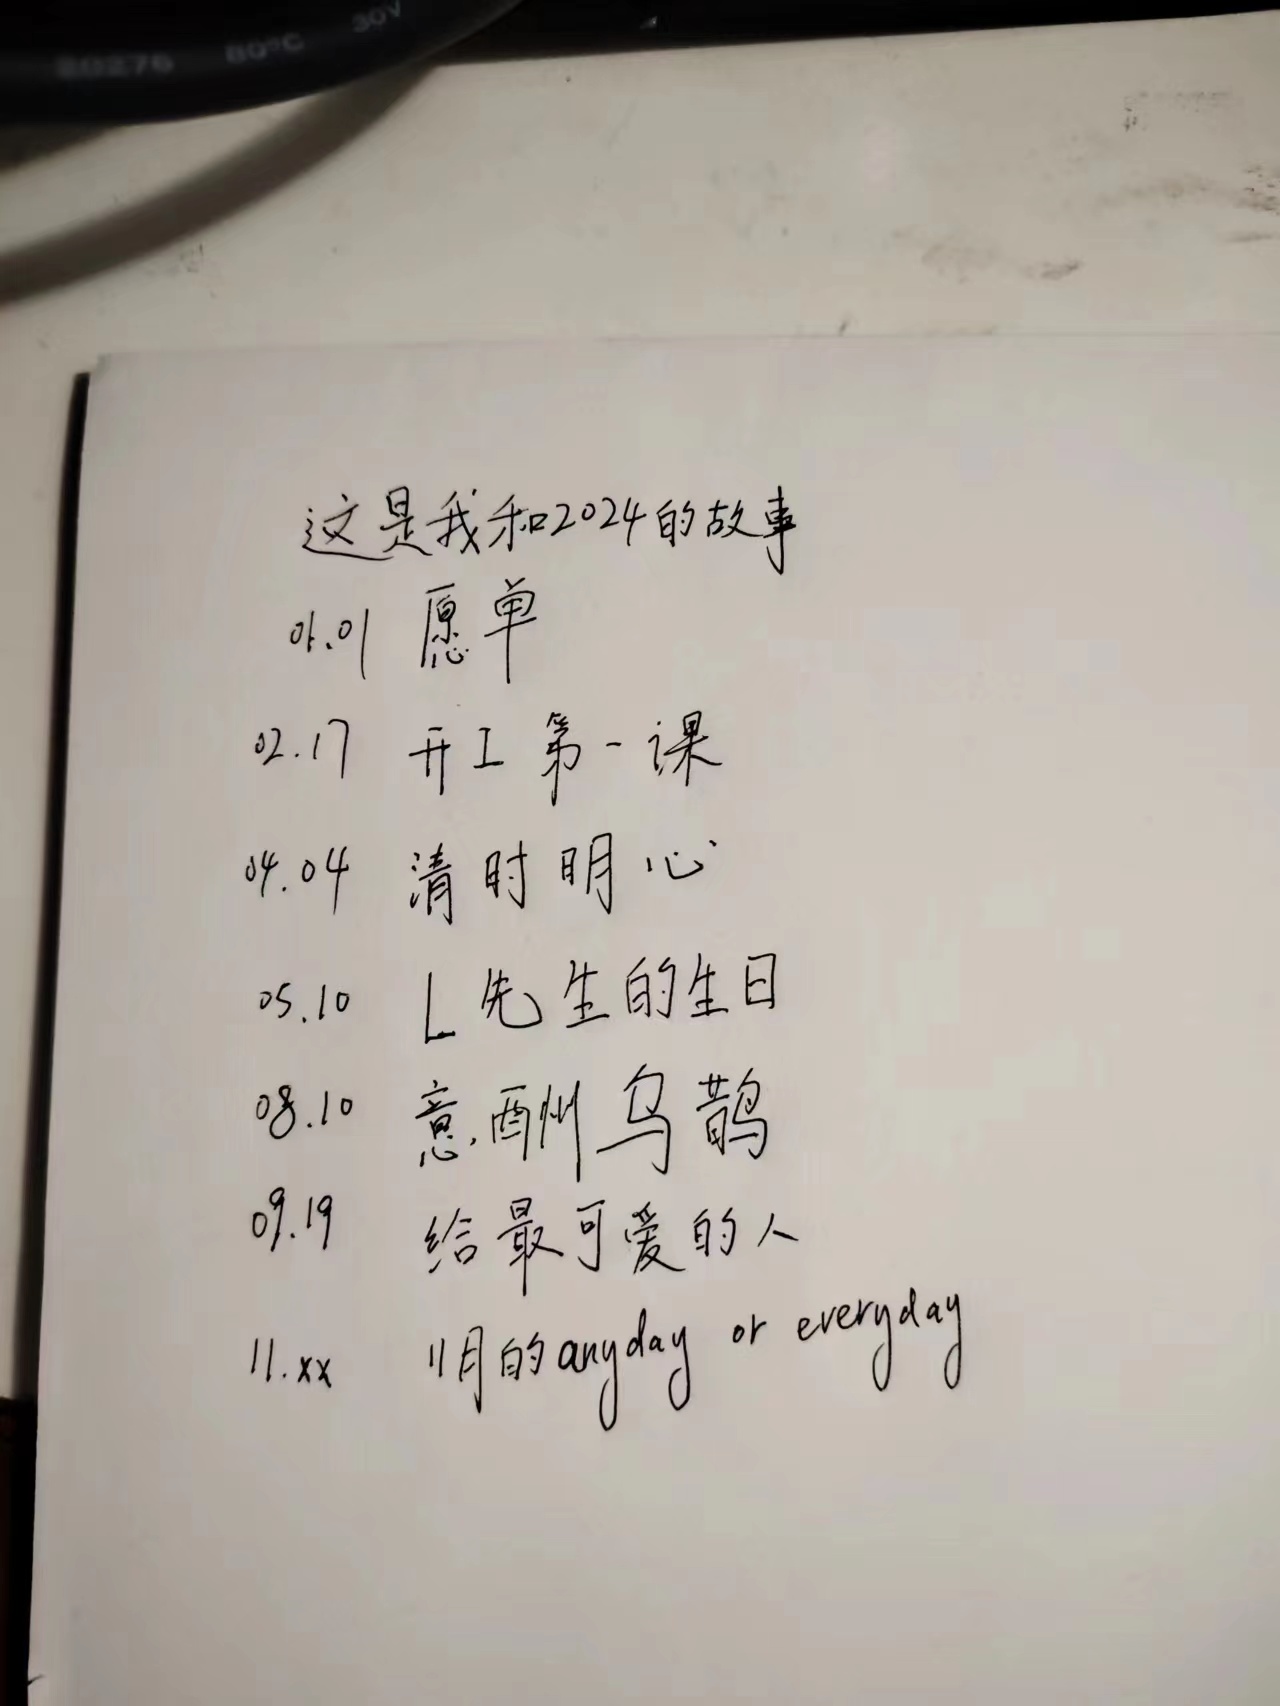 80276 80°C 30V
这是我和2024的故事
01.01 愿单
02.17 开工第一课
04.04 清时明心
05.10 L先生的生日
08.10 意酬乌鹊
09.19 给最可爱的人
11.xx 11月的anyday or everyday